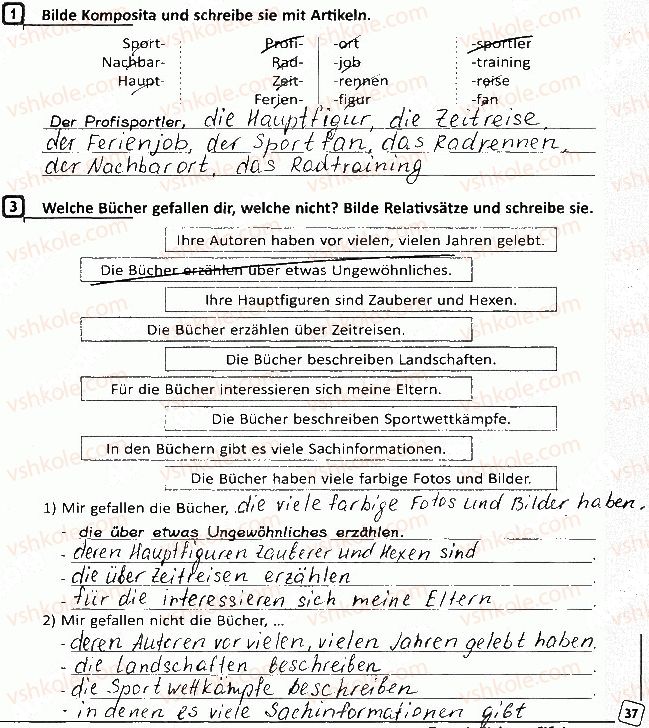 1 Bilde Komposita und schreibe sie mit Artikeln.
Sport- Profi- -ort -sportler
Nachbar- Rad- -job -training
Haupt- Zeit- -rennen -reise
Ferien- -figur -fan
Der Profisportler, die Hauptfigur, die Zeitreise,
der Ferienjob, der Sportfan, das Radrennen,
der Nachbarort, das Radtraining
3 Welche Bücher gefallen dir, welche nicht? Bilde Relativsätze und schreibe sie.
Ihre Autoren haben vor vielen, vielen Jahren gelebt.
Die Bücher erzählen über etwas Ungewöhnliches.
Ihre Hauptfiguren sind Zauberer und Hexen.
Die Bücher erzählen über Zeitreisen.
Die Bücher beschreiben Landschaften.
Für die Bücher interessieren sich meine Eltern.
Die Bücher beschreiben Sportwettkämpfe.
In den Büchern gibt es viele Sachinformationen.
Die Bücher haben viele farbige Fotos und Bilder.
1) Mir gefallen die Bücher, die viele farbige Fotos und Bilder haben.
- die über etwas Ungewöhnliches erzählen.
- deren Hauptfiguren Zauberer und Hexen sind.
- die über Zeitreisen erzählen.
- für die interessieren sich meine Eltern.
2) Mir gefallen nicht die Bücher, ...
- deren Autoren vor vielen, vielen Jahren gelebt haben.
- die Landschaften beschreiben.
- die Sportwettkämpfe beschreiben.
- in denen es viele Sachinformationen gibt
37